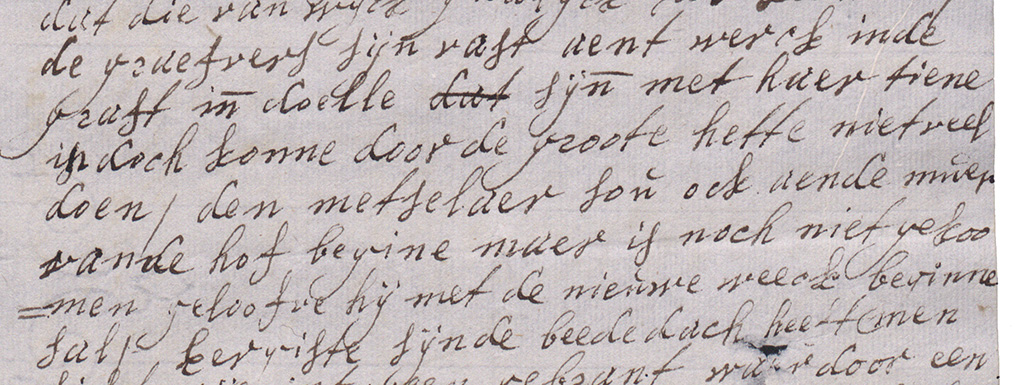 dat die van wijck
de graefvers sijn vast aent werck inde
graft in̄ doelle dat sijn̄ met haer tiene
is doch konne door de groote hette niet veel
doen / den metselaer soŭ ock aende mŭer
vande hof begine maer is noch niet gekoo
=men geloofve hij met de nieuwe weeck beginne
sal / eergiste sijnde beededach heeft men
waerdoor een